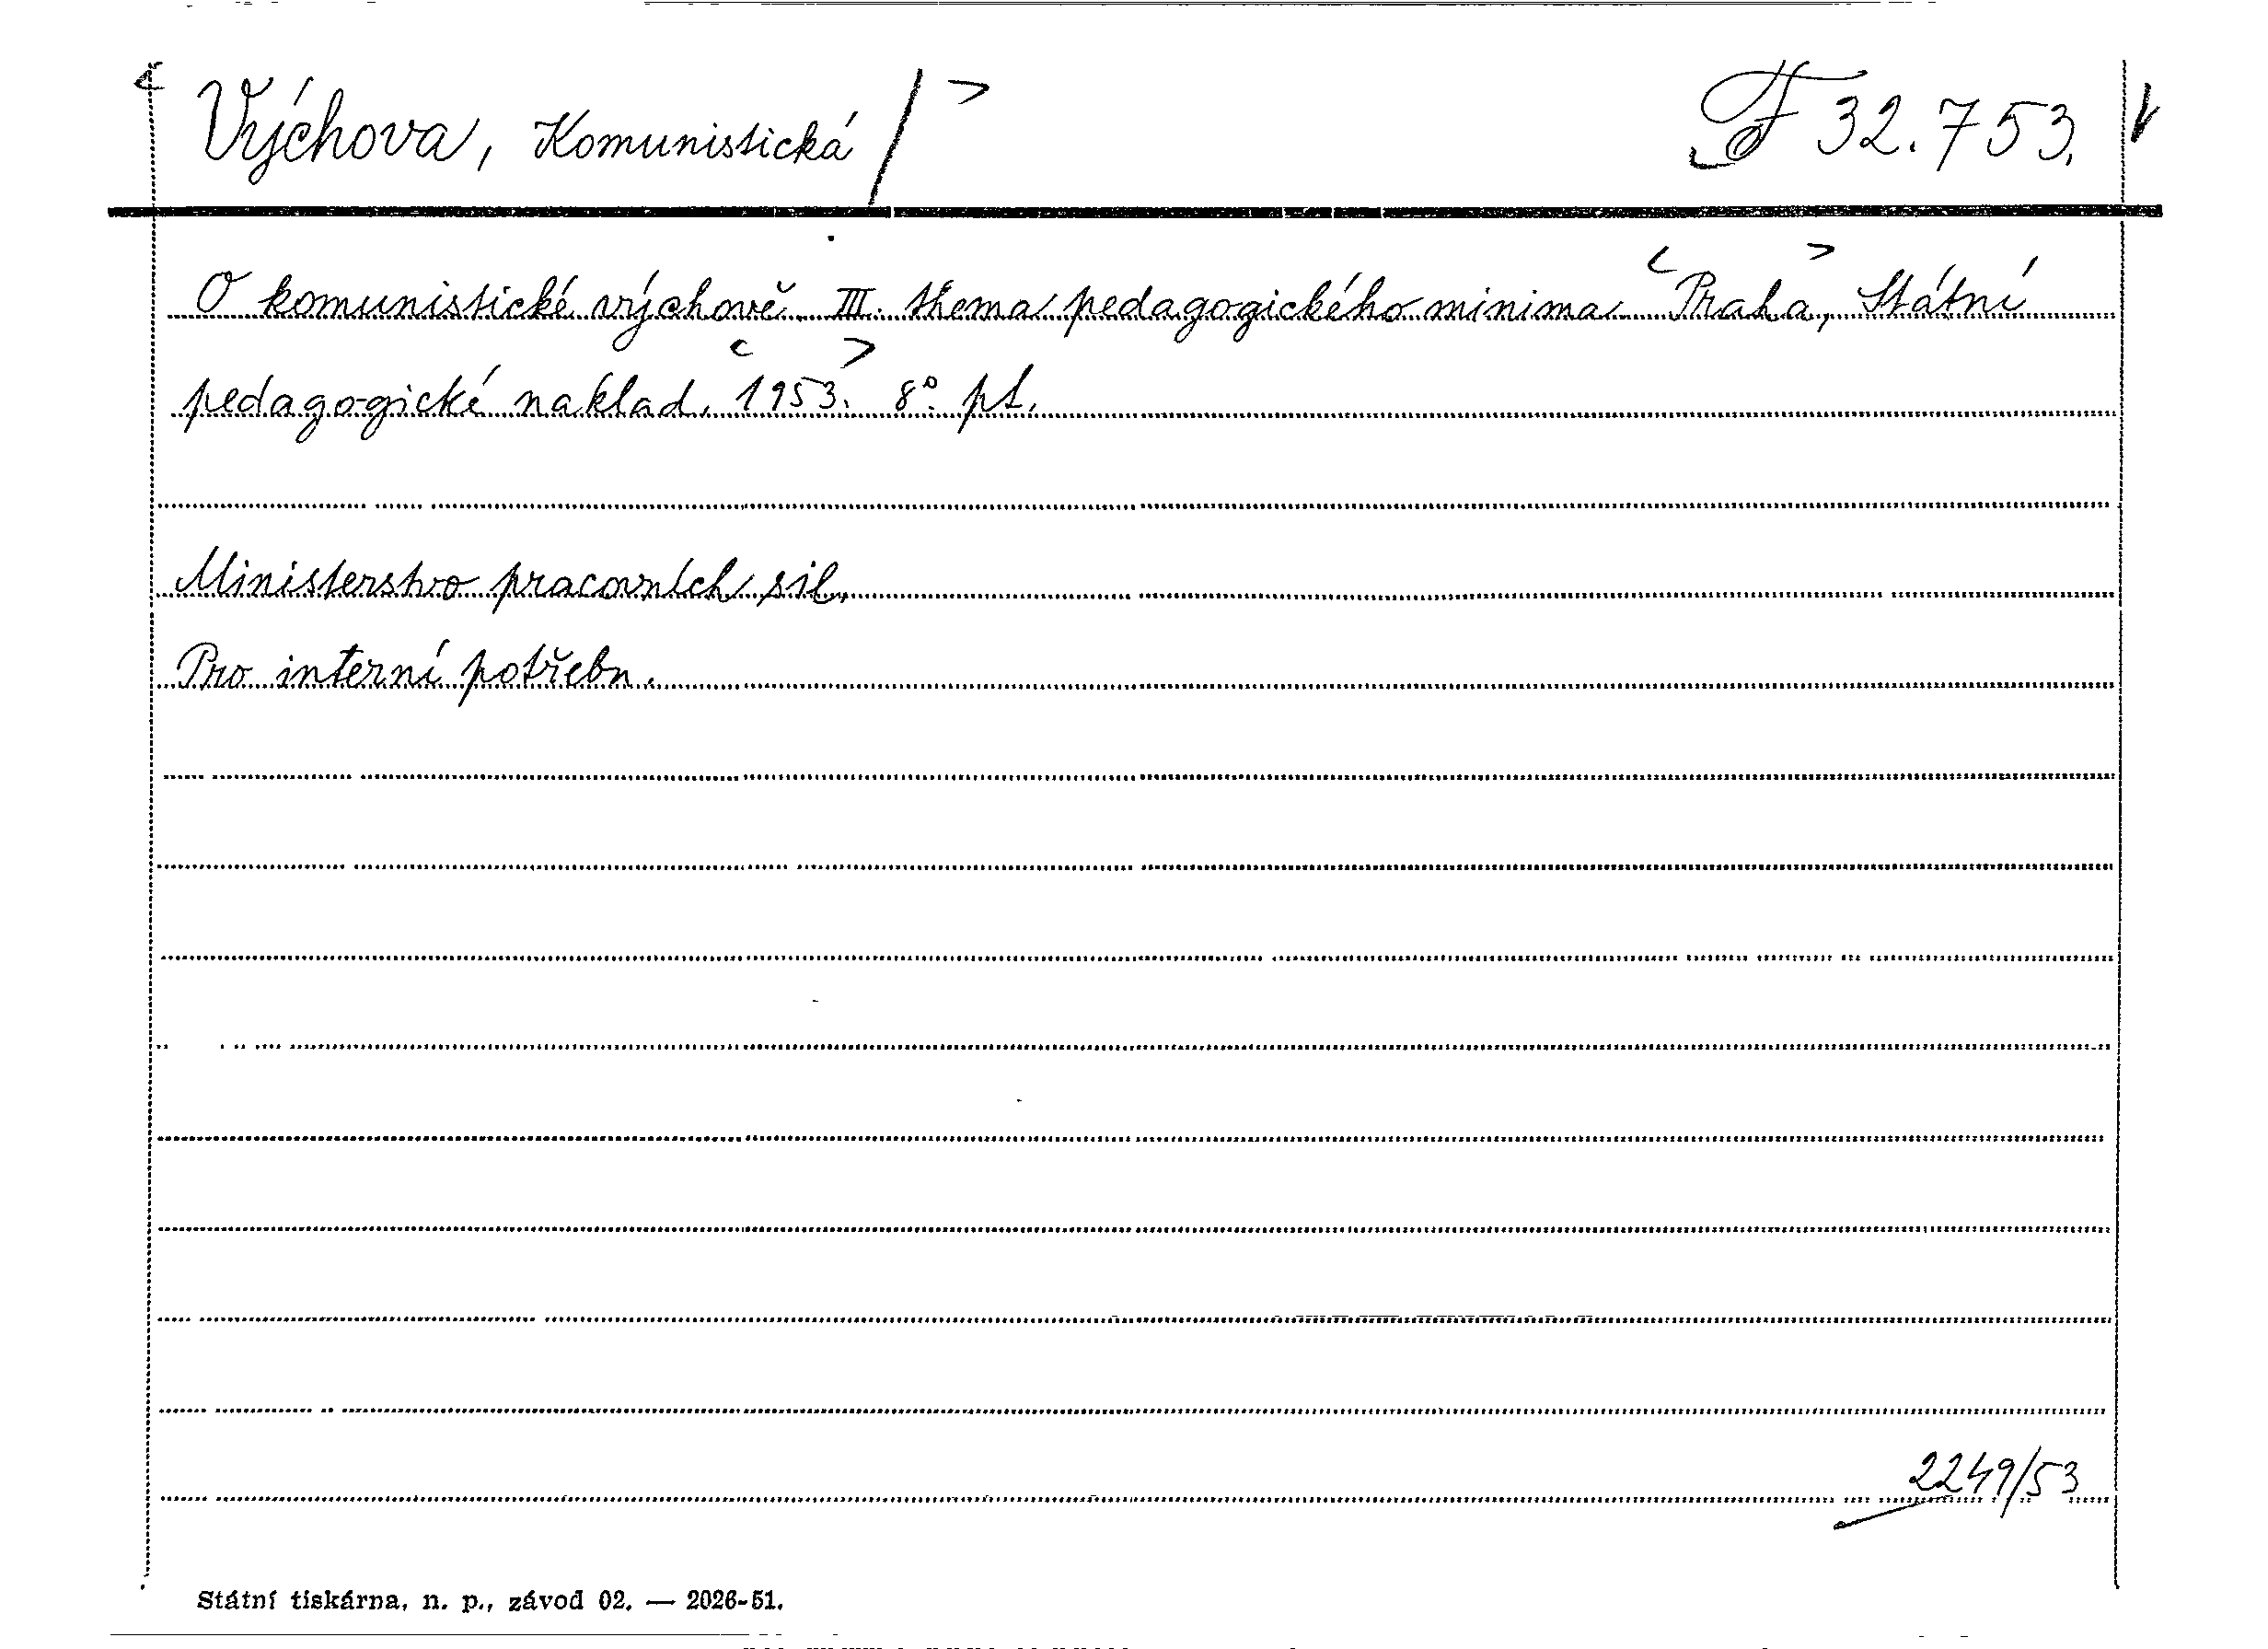 < Výchova, Komunistická / > F 32.753.
O komunistické výchově. III. thema pedagogického minima <Praha>, Státní
pedagogické naklad. <1953>. 8°. pt.
Ministerstvo pracovních sil.
Pro interní potřebu.
2249/53
Státní tiskárna, n. p., závod 02. — 2026-51.